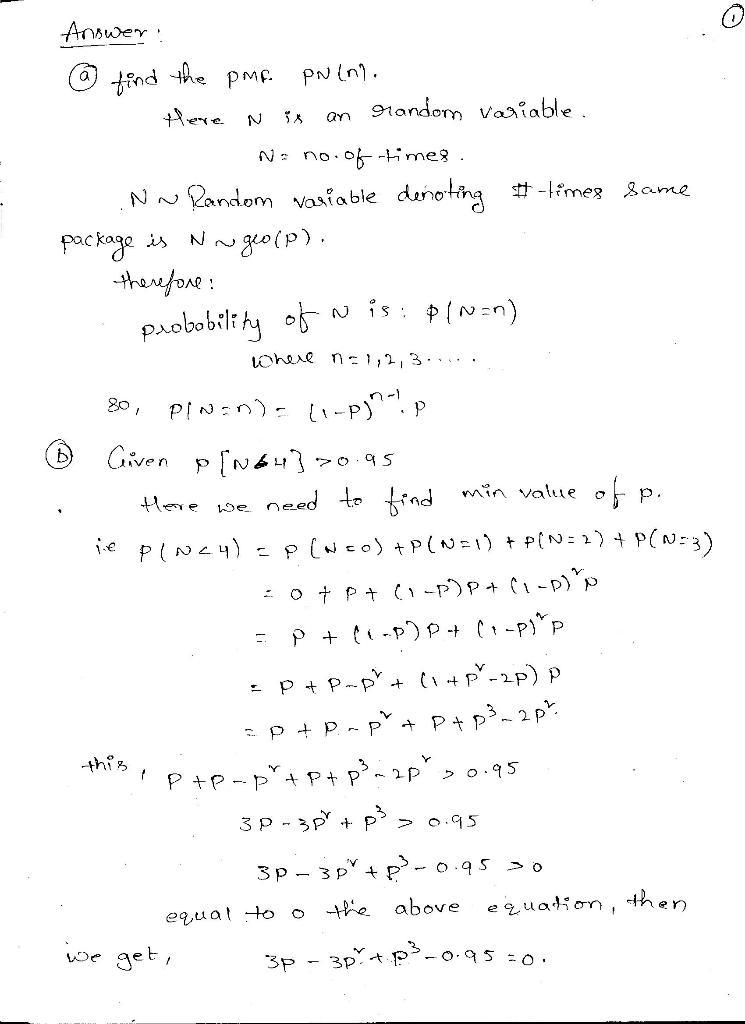 ①
Answer :
ⓐ find the PMF. PN(n).
Here N is an random variable.
N = no. of -times.
N ~ Random variable denoting #-times same
package is N ~ geo(p).
therefore:
probability of N is : P(N=n)
where n=1,2,3.....
So, P(N=n) = (1-P)ⁿ⁻¹. P
ⓑ Given P[N<4] >0.95
Here we need to find min value of p.
i.e P(N<4) = P(N=0) +P(N=1) + P(N=2) + P(N=3)
= 0 + P + (1-P)P + (1-P)²P
= P + (1-P)P + (1-P)²P
= P + P-P² + (1+P²-2P) P
= P + P - P² + P + P³ - 2P².
this, P+P-P²+P+P³-2P² > 0.95
3P - 3P² + P³ > 0.95
3P - 3P² + P³ - 0.95 >0
equal to 0 the above equation, then
we get, 3P - 3P² + P³ - 0.95 = 0.